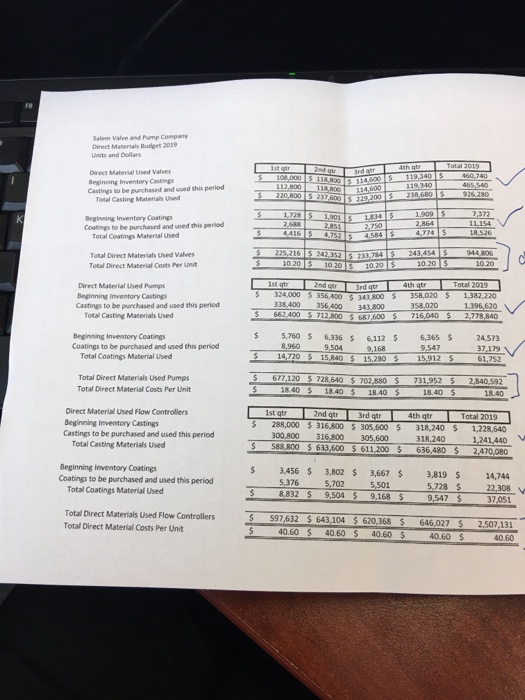 F8
K
Salem Valve and Pump Company
Direct Materials Budget 2019
Units and Dollars
1st qtr 2nd qtr 3rd qtr 4th qtr Total 2019
Direct Material Used Valves
Beginning Inventory Castings $ 108,000 $ 118,800 $ 114,600 $ 119,340 $ 460,740
Castings to be purchased and used this period 112,800 118,800 114,600 119,340 465,540
Total Casting Materials Used $ 220,800 $ 237,600 $ 229,200 $ 238,680 $ 926,280
Beginning Inventory Coatings $ 1,728 $ 1,901 $ 1,834 $ 1,909 $ 7,372
Coatings to be purchased and used this period 2,688 2,851 2,750 2,864 11,154
Total Coatings Material Used $ 4,416 $ 4,752 $ 4,584 $ 4,774 $ 18,526
Total Direct Materials Used Valves $ 225,216 $ 242,352 $ 233,784 $ 243,454 $ 944,806
Total Direct Material Costs Per Unit $ 10.20 $ 10.20 $ 10.20 $ 10.20 $ 10.20
1st qtr 2nd qtr 3rd qtr 4th qtr Total 2019
Direct Material Used Pumps
Beginning Inventory Castings $ 324,000 $ 356,400 $ 343,800 $ 358,020 $ 1,382,220
Castings to be purchased and used this period 338,400 356,400 343,800 358,020 1,396,620
Total Casting Materials Used $ 662,400 $ 712,800 $ 687,600 $ 716,040 $ 2,778,840
Beginning Inventory Coatings $ 5,760 $ 6,336 $ 6,112 $ 6,365 $ 24,573
Coatings to be purchased and used this period 8,960 9,504 9,168 9,547 37,179
Total Coatings Material Used $ 14,720 $ 15,840 $ 15,280 $ 15,912 $ 61,752
Total Direct Materials Used Pumps $ 677,120 $ 728,640 $ 702,880 $ 731,952 $ 2,840,592
Total Direct Materials Costs Per Unit $ 18.40 $ 18.40 $ 18.40 $ 18.40 $ 18.40
1st qtr 2nd qtr 3rd qtr 4th qtr Total 2019
Direct Material Used Flow Controllers
Beginning Inventory Castings $ 288,000 $ 316,800 $ 305,600 $ 318,240 $ 1,228,640
Castings to be purchased and used this period 300,800 316,800 305,600 318,240 1,241,440
Total Casting Materials Used $ 588,800 $ 633,600 $ 611,200 $ 636,480 $ 2,470,080
Beginning Inventory Coatings $ 3,456 $ 3,802 $ 3,667 $ 3,819 $ 14,744
Coatings to be purchased and used this period 5,376 5,702 5,501 5,728 $ 22,308
Total Coatings Material Used $ 8,832 $ 9,504 $ 9,168 $ 9,547 $ 37,051
Total Direct Materials Used Flow Controllers $ 597,632 $ 643,104 $ 620,368 $ 646,027 $ 2,507,131
Total Direct Material Costs Per Unit $ 40.60 $ 40.60 $ 40.60 $ 40.60 $ 40.60